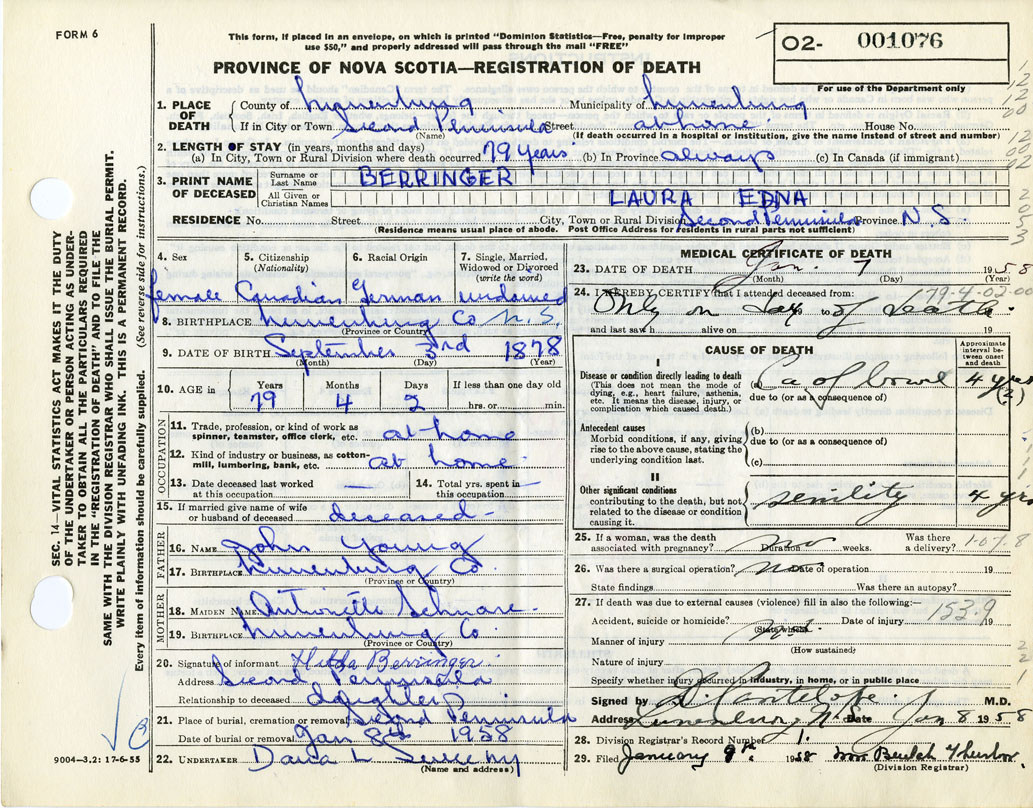 FORM 6
This form, if placed in an envelope, on which is printed "Dominion Statistics—Free, penalty for improper
use $50," and properly addressed will pass through the mail "FREE"
PROVINCE OF NOVA SCOTIA—REGISTRATION OF DEATH
02- 001076
For use of the Department only
1. PLACE OF DEATH { County of Lunenburg Municipality of Lunenburg
If in City or Town Second Peninsula Street at home House No.
(Name) (If death occurred in a hospital or institution, give the name instead of street and number)
2. LENGTH OF STAY (in years, months and days)
(a) In City, Town or Rural Division where death occurred 79 years (b) In Province always (c) In Canada (if immigrant)
3. PRINT NAME OF DECEASED { Surname or Last Name BERRINGER
All Given or Christian Names LAURA EDNA
RESIDENCE No. Street City, Town or Rural Division Second Peninsula Province N.S.
(Residence means usual place of abode. Post Office Address for residents in rural parts not sufficient)
4. Sex
female
5. Citizenship
(Nationality)
Canadian
6. Racial Origin
German
7. Single, Married,
Widowed or Divorced
(write the word)
widowed
8. BIRTHPLACE Lunenburg Co N.S.
(Province or Country)
9. DATE OF BIRTH September 3rd 1878
(Month) (Day) (Year)
10. AGE in { Years Months Days If less than one day old
79 4 2 hrs. or min.
OCCUPATION
11. Trade, profession, or kind of work as
spinner, teamster, office clerk, etc. at home
12. Kind of industry or business, as cotton-
mill, lumbering, bank, etc. at home
13. Date deceased last worked
at this occupation —
14. Total yrs. spent in
this occupation —
15. If married give name of wife
or husband of deceased deceased
FATHER
16. NAME John Young
17. BIRTHPLACE Lunenburg Co.
(Province or Country)
MOTHER
18. MAIDEN NAME Antonette Schnare
19. BIRTHPLACE Lunenburg Co.
(Province or Country)
20. Signature of informant Hilda Berringer
Address Second Peninsula
Relationship to deceased daughter
21. Place of burial, cremation or removal Second Peninsula
Date of burial or removal Jan 1958
22. UNDERTAKER L
(Name and address)
MEDICAL CERTIFICATE OF DEATH
23. DATE OF DEATH Jan. 7 1958
(Month) (Day) (Year)
24. I HEREBY CERTIFY that I attended deceased from: 179-4-02-00
Only on day of death
and last saw h alive on 19
CAUSE OF DEATH
Approximate
interval be-
tween onset
and death
I
Disease or condition directly leading to death
(This does not mean the mode of
dying, e.g., heart failure, asthenia,
etc. It means the disease, injury, or
complication which caused death.)
(a) Ca of bowel 4 yrs (?)
due to (or as a consequence of)
Antecedent causes
Morbid conditions, if any, giving
rise to the above cause, stating the
underlying condition last.
(b)
due to (or as a consequence of)
(c)
II
Other significant conditions
contributing to the death, but not
related to the disease or condition
causing it.
senility 4 yrs
25. If a woman, was the death
associated with pregnancy? no Duration weeks. Was there
a delivery?
26. Was there a surgical operation? no Date of operation 19
State findings Was there an autopsy?
27. If death was due to external causes (violence) fill in also the following:—
Accident, suicide or homicide? Date of injury 19
153.9
(State which)
Manner of injury
(How sustained)
Nature of injury
Specify whether injury occurred in industry, in home, or in public place
Signed by D. Cantelope M.D.
Address Lunenburg, N.S. Date Jan 8 1958
28. Division Registrar's Record Number 1.
29. Filed January 9th 1958 Mrs Beulah
(Division Registrar)
SEC. 14—VITAL STATISTICS ACT MAKES IT THE DUTY
OF THE UNDERTAKER OR PERSON ACTING AS UNDER-
TAKER TO OBTAIN ALL THE PARTICULARS REQUIRED
IN THE "REGISTRATION OF DEATH" AND TO FILE THE
SAME WITH THE DIVISION REGISTRAR WHO SHALL ISSUE THE BURIAL PERMIT.
WRITE PLAINLY WITH UNFADING INK. THIS IS A PERMANENT RECORD.
Every item of information should be carefully supplied. (See reverse side for instructions.)
9004—3,2: 17-6-55